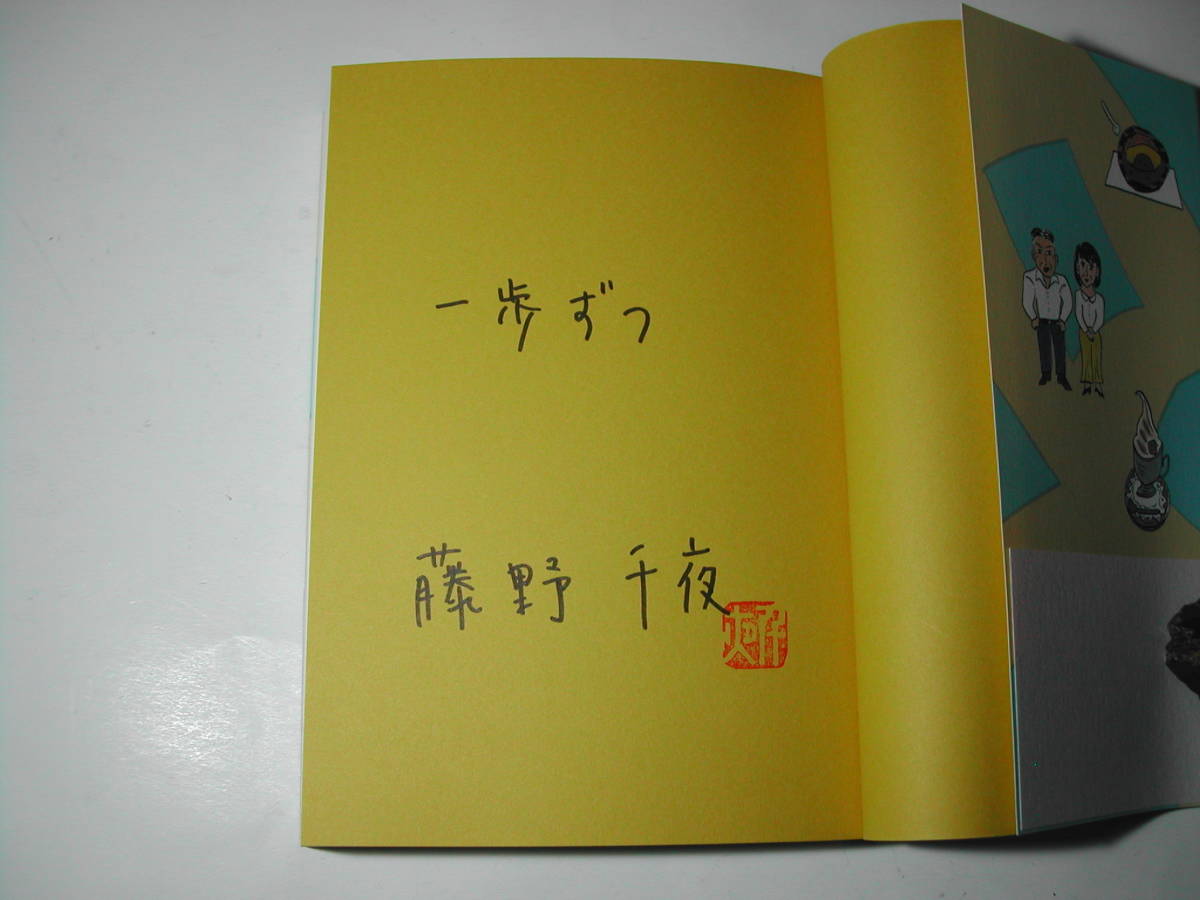 一歩ずつ
藤野 千夜